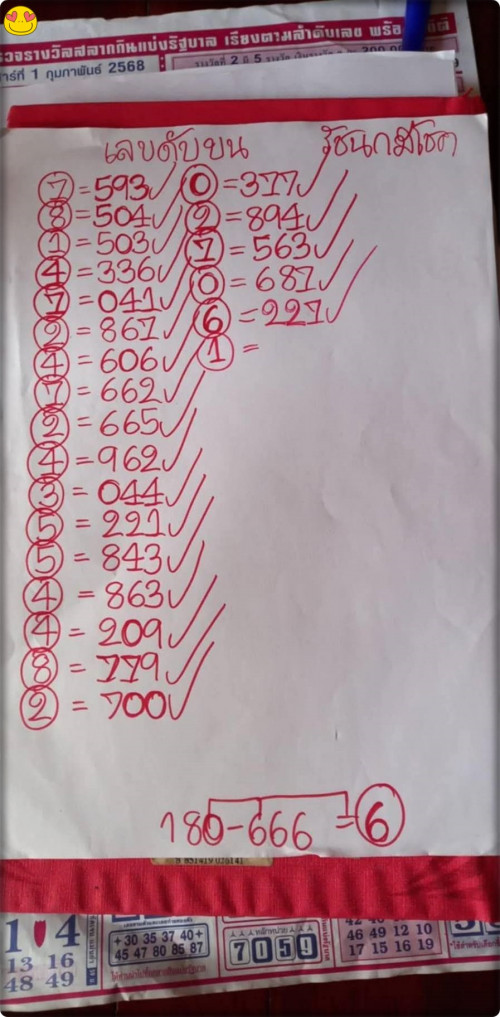 ตรวจรางวัลสลากกินแบ่งรัฐบาล เรียงตามลำดับเลข
1 กุมภาพันธ์ 2568
รางวัลที่ 2 มี 5 รางวัล
เลขดับบน รัชนกมีโชค
7 = 593 0 = 377
8 = 504 2 = 894
1 = 503 7 = 563
4 = 336 0 = 687
7 = 041 6 = 227
2 = 867 1 =
4 = 606
7 = 662
2 = 665
4 = 962
3 = 044
5 = 221
5 = 843
4 = 863
4 = 209
8 = 779
2 = 700
180-666 = 6
1 4
13 16
48 49
+ 30 35 37 40 +
45 47 80 85 87
7059
46 49 12 10
17 15 16 19